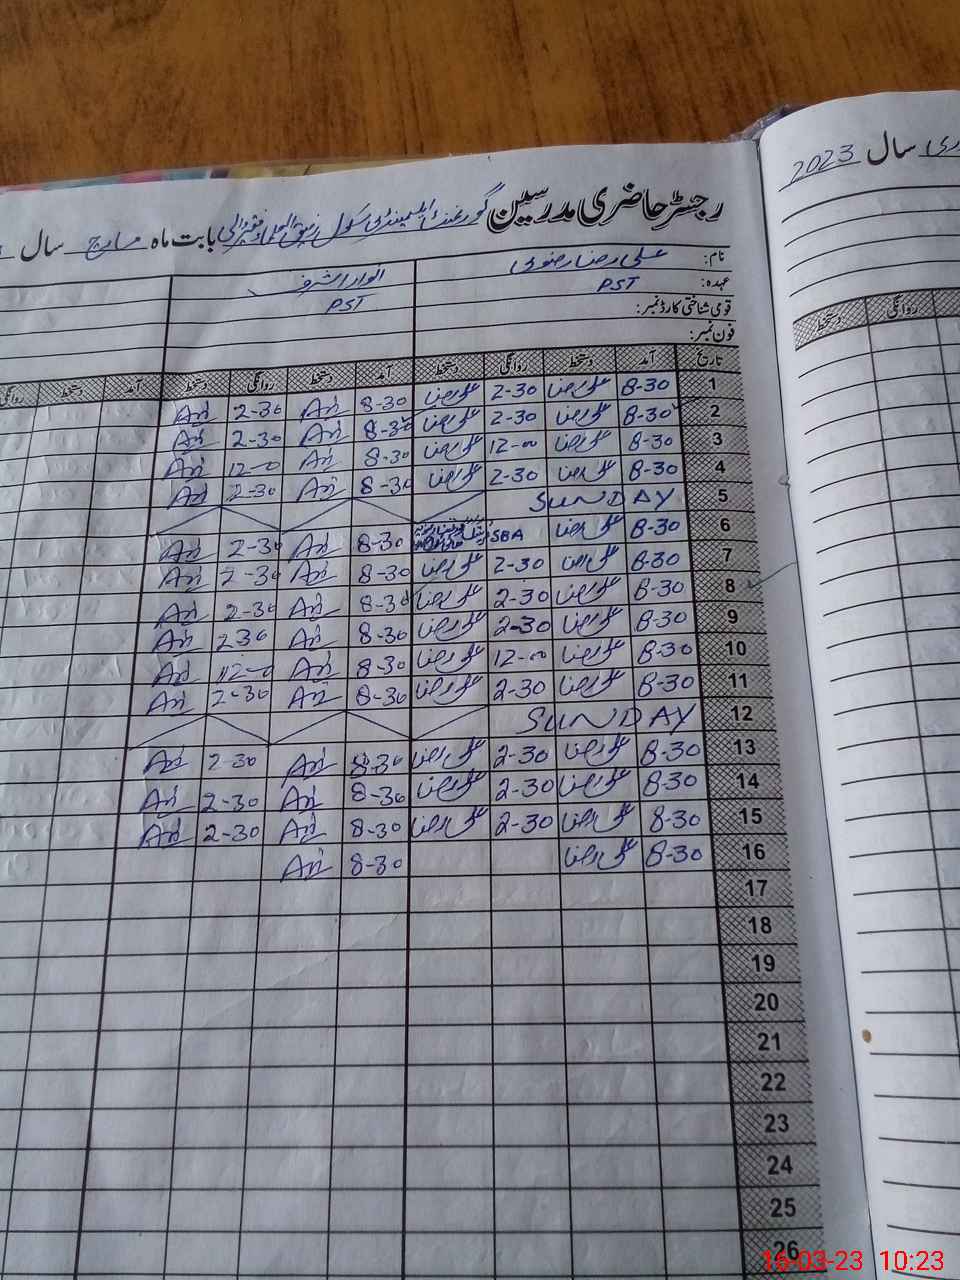 رجسٹر حاضری مدرسین گورنمنٹ ایلیمنٹری سکول بابت ماہ مارچ سال
سال 2023
نام: علی رضا رضوی انوار اشرف
عہدہ: PST PST
قومی شناختی کارڈ نمبر:
فون نمبر:
تاریخ آمد دستخط روانگی دستخط آمد دستخط روانگی دستخط آمد دستخط روانگی
روانگی دستخط
1 8-30 علی رضا 2-30 علی رضا 8-30 2-30
2 8-30 علی رضا 2-30 علی رضا 8-30 2-30
3 8-30 علی رضا 12-00 علی رضا 8-30 12-0
4 8-30 علی رضا 2-30 علی رضا 8-30 2-30
5 SUNDAY
6 8-30 علی رضا SBA 8-30 2-30
7 8-30 علی رضا 2-30 علی رضا 8-30 2-30
8 8-30 علی رضا 2-30 علی رضا 8-30 2-30
9 8-30 علی رضا 2-30 علی رضا 8-30 2-30
10 8-30 علی رضا 12-00 علی رضا 8-30 12-0
11 8-30 علی رضا 2-30 علی رضا 8-30 2-30
12 SUNDAY
13 8-30 علی رضا 2-30 علی رضا 8-30 2-30
14 8-30 علی رضا 2-30 علی رضا 8-30 2-30
15 8-30 علی رضا 2-30 علی رضا 8-30 2-30
16 8-30 علی رضا 8-30
17
18
19
20
21
22
23
24
25
26
16-03-23 10:23